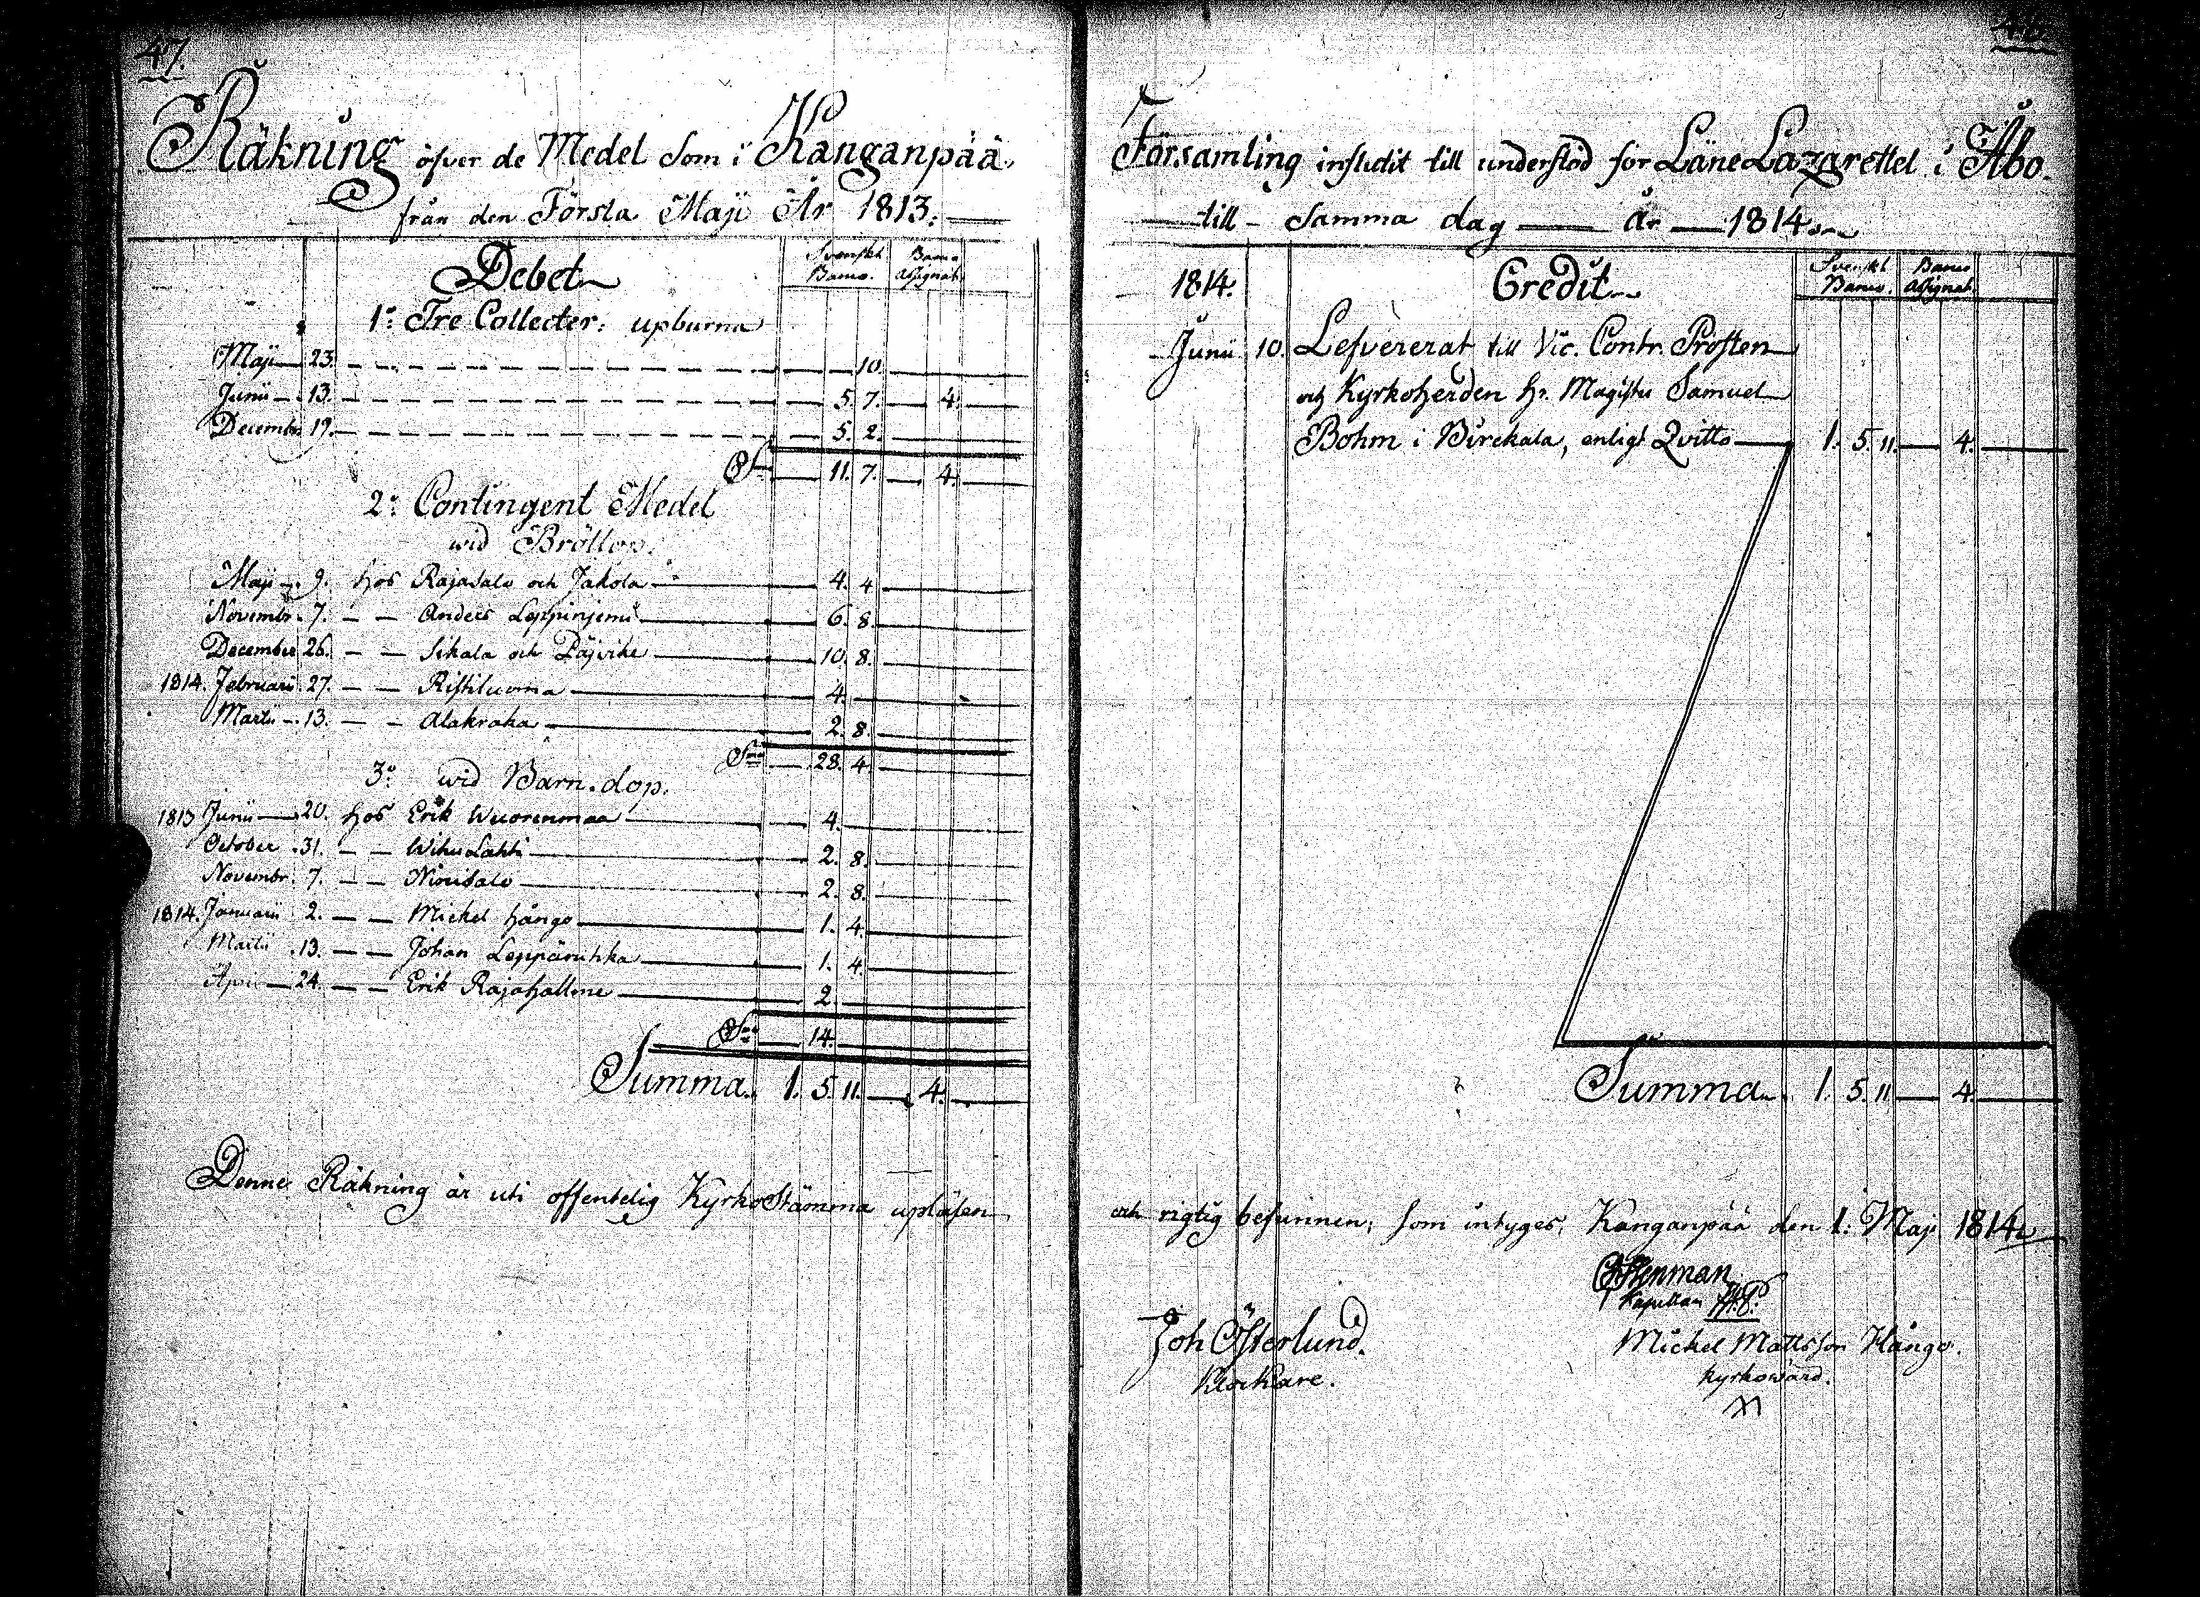 47.
Räkning öfver de Medel Som i Kanganpää
från den Första Maji År 1813.
Debet
Svenskt Banco.
Banco Assignat.
1:o Tre Collecter: upburna
Maji 23. 10.
Junii 13. 5. 7. 4.
Decembr 19. 5. 2.
S:a 11. 7. 4.
2:o Contingent Medel
wid Bröllop.
Maji 9. hos Rajasalo och Jakola 4. 4
Novembr. 7. Anders Leppinjemi 6. 8.
December 26. Sikala och Päjvike 10. 8.
1814. Februarii 27. Ristiluoma 4.
Martii 13. Alakraka 2. 8.
S:ma 28. 4.
3:o wid Barn-dop.
1813 Junii 20. hos Erik Wuorenmaa 4.
October 31. Wihu Lahti 2. 8.
Novembr. 7. Niinisalo 2. 8.
1814. Januarii 2. Michel Hångo 1. 4.
Martii 13. Johan Leppäruhka 1. 4.
April 24. Erik Rajahallme 2.
S:ma 14.
Summa. 1. 5. 11. 4.
Denne Räkning är uti offentelig KyrkoStämma upläsen
Församling influtit till understöd för Läne Lazarettet i Åbo.
till Samma dag År 1814.
1814. Credit
Svenskt Banco.
Banco Assignat.
Junii 10. Lefvererat till Vic. Contr. Prosten
och Kyrkoherden Hr. Magister Samuel
Bohm i Birckala, enligt Qvitto 1. 5. 11. 4.
Summa. 1. 5. 11 4.
och rigtig befunnen; som intyges, Kanganpää den 1: Maji 1814
Stenman
Kapellan
Joh Österlund.
Klockare.
Michel Mattsson Hångo.
Kyrkowärd.